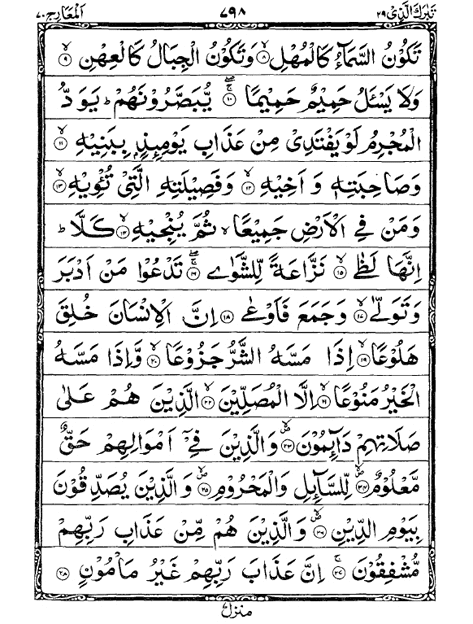 تبٰرك الذی ٢٩ ٧٩٨ المعارج ٧٠
تَكُوْنُ السَّمَآءُ كَالْمُهْلِ ۙ﴿٨﴾ وَتَكُوْنُ الْجِبَالُ كَالْعِهْنِ ۙ﴿٩﴾
وَلَا يَسْـَٔلُ حَمِيْمٌ حَمِيْمًا ﴿١٠﴾ يُّبَصَّرُوْنَهُمْ ؕ يَوَدُّ
الْمُجْرِمُ لَوْ يَفْتَدِیْ مِنْ عَذَابِ يَوْمِئِذٍۭ بِبَنِيْهِ ۙ﴿١١﴾
وَصَاحِبَتِهٖ وَاَخِيْهِ ۙ﴿١٢﴾ وَفَصِيْلَتِهِ الَّتِیْ تُـْٔوِيْهِ ۙ﴿١٣﴾
وَمَنْ فِی الْاَرْضِ جَمِيْعًا ۙ ثُمَّ يُنْجِيْهِ ۙ﴿١٤﴾ كَلَّا ؕ
اِنَّهَا لَظٰی ۙ﴿١٥﴾ نَزَّاعَةً لِّلشَّوٰی ﴿١٦﴾ تَدْعُوْا مَنْ اَدْبَرَ
وَتَوَلّٰی ۙ﴿١٧﴾ وَجَمَعَ فَاَوْعٰی ﴿١٨﴾ اِنَّ الْاِنْسَانَ خُلِقَ
هَلُوْعًا ۙ﴿١٩﴾ اِذَا مَسَّهُ الشَّرُّ جَزُوْعًا ۙ﴿٢٠﴾ وَّاِذَا مَسَّهُ
الْخَيْرُ مَنُوْعًا ۙ﴿٢١﴾ اِلَّا الْمُصَلِّيْنَ ۙ﴿٢٢﴾ الَّذِيْنَ هُمْ عَلٰی
صَلَاتِهِمْ دَآئِمُوْنَ ۪ۙ﴿٢٣﴾ وَالَّذِيْنَ فِیْۤ اَمْوَالِهِمْ حَقٌّ
مَّعْلُوْمٌ ۪ۙ﴿٢٤﴾ لِّلسَّآئِلِ وَالْمَحْرُوْمِ ۪ۙ﴿٢٥﴾ وَالَّذِيْنَ يُصَدِّقُوْنَ
بِيَوْمِ الدِّيْنِ ۪ۙ﴿٢٦﴾ وَالَّذِيْنَ هُمْ مِّنْ عَذَابِ رَبِّهِمْ
مُّشْفِقُوْنَ ۚ﴿٢٧﴾ اِنَّ عَذَابَ رَبِّهِمْ غَيْرُ مَاْمُوْنٍ ﴿٢٨﴾
منزل